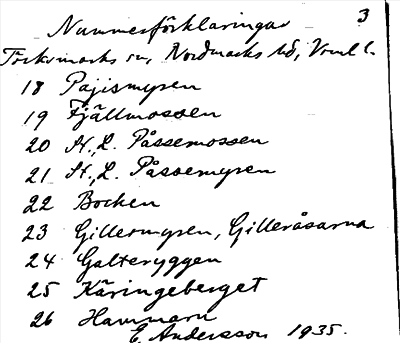 Nummerförklaringar 3
Töcksmarks sn, Nordmarks hd, Vrml l.
18 Pajismyren
19 Fjällmossen
20 St., L. Påssemossen
21 St., L. Påssemyren
22 Bocken
23 Gillermyren, Gilleråsarna
24 Galteryggen
25 Käringeberget
26 Hammarn
E. Andersson 1935.